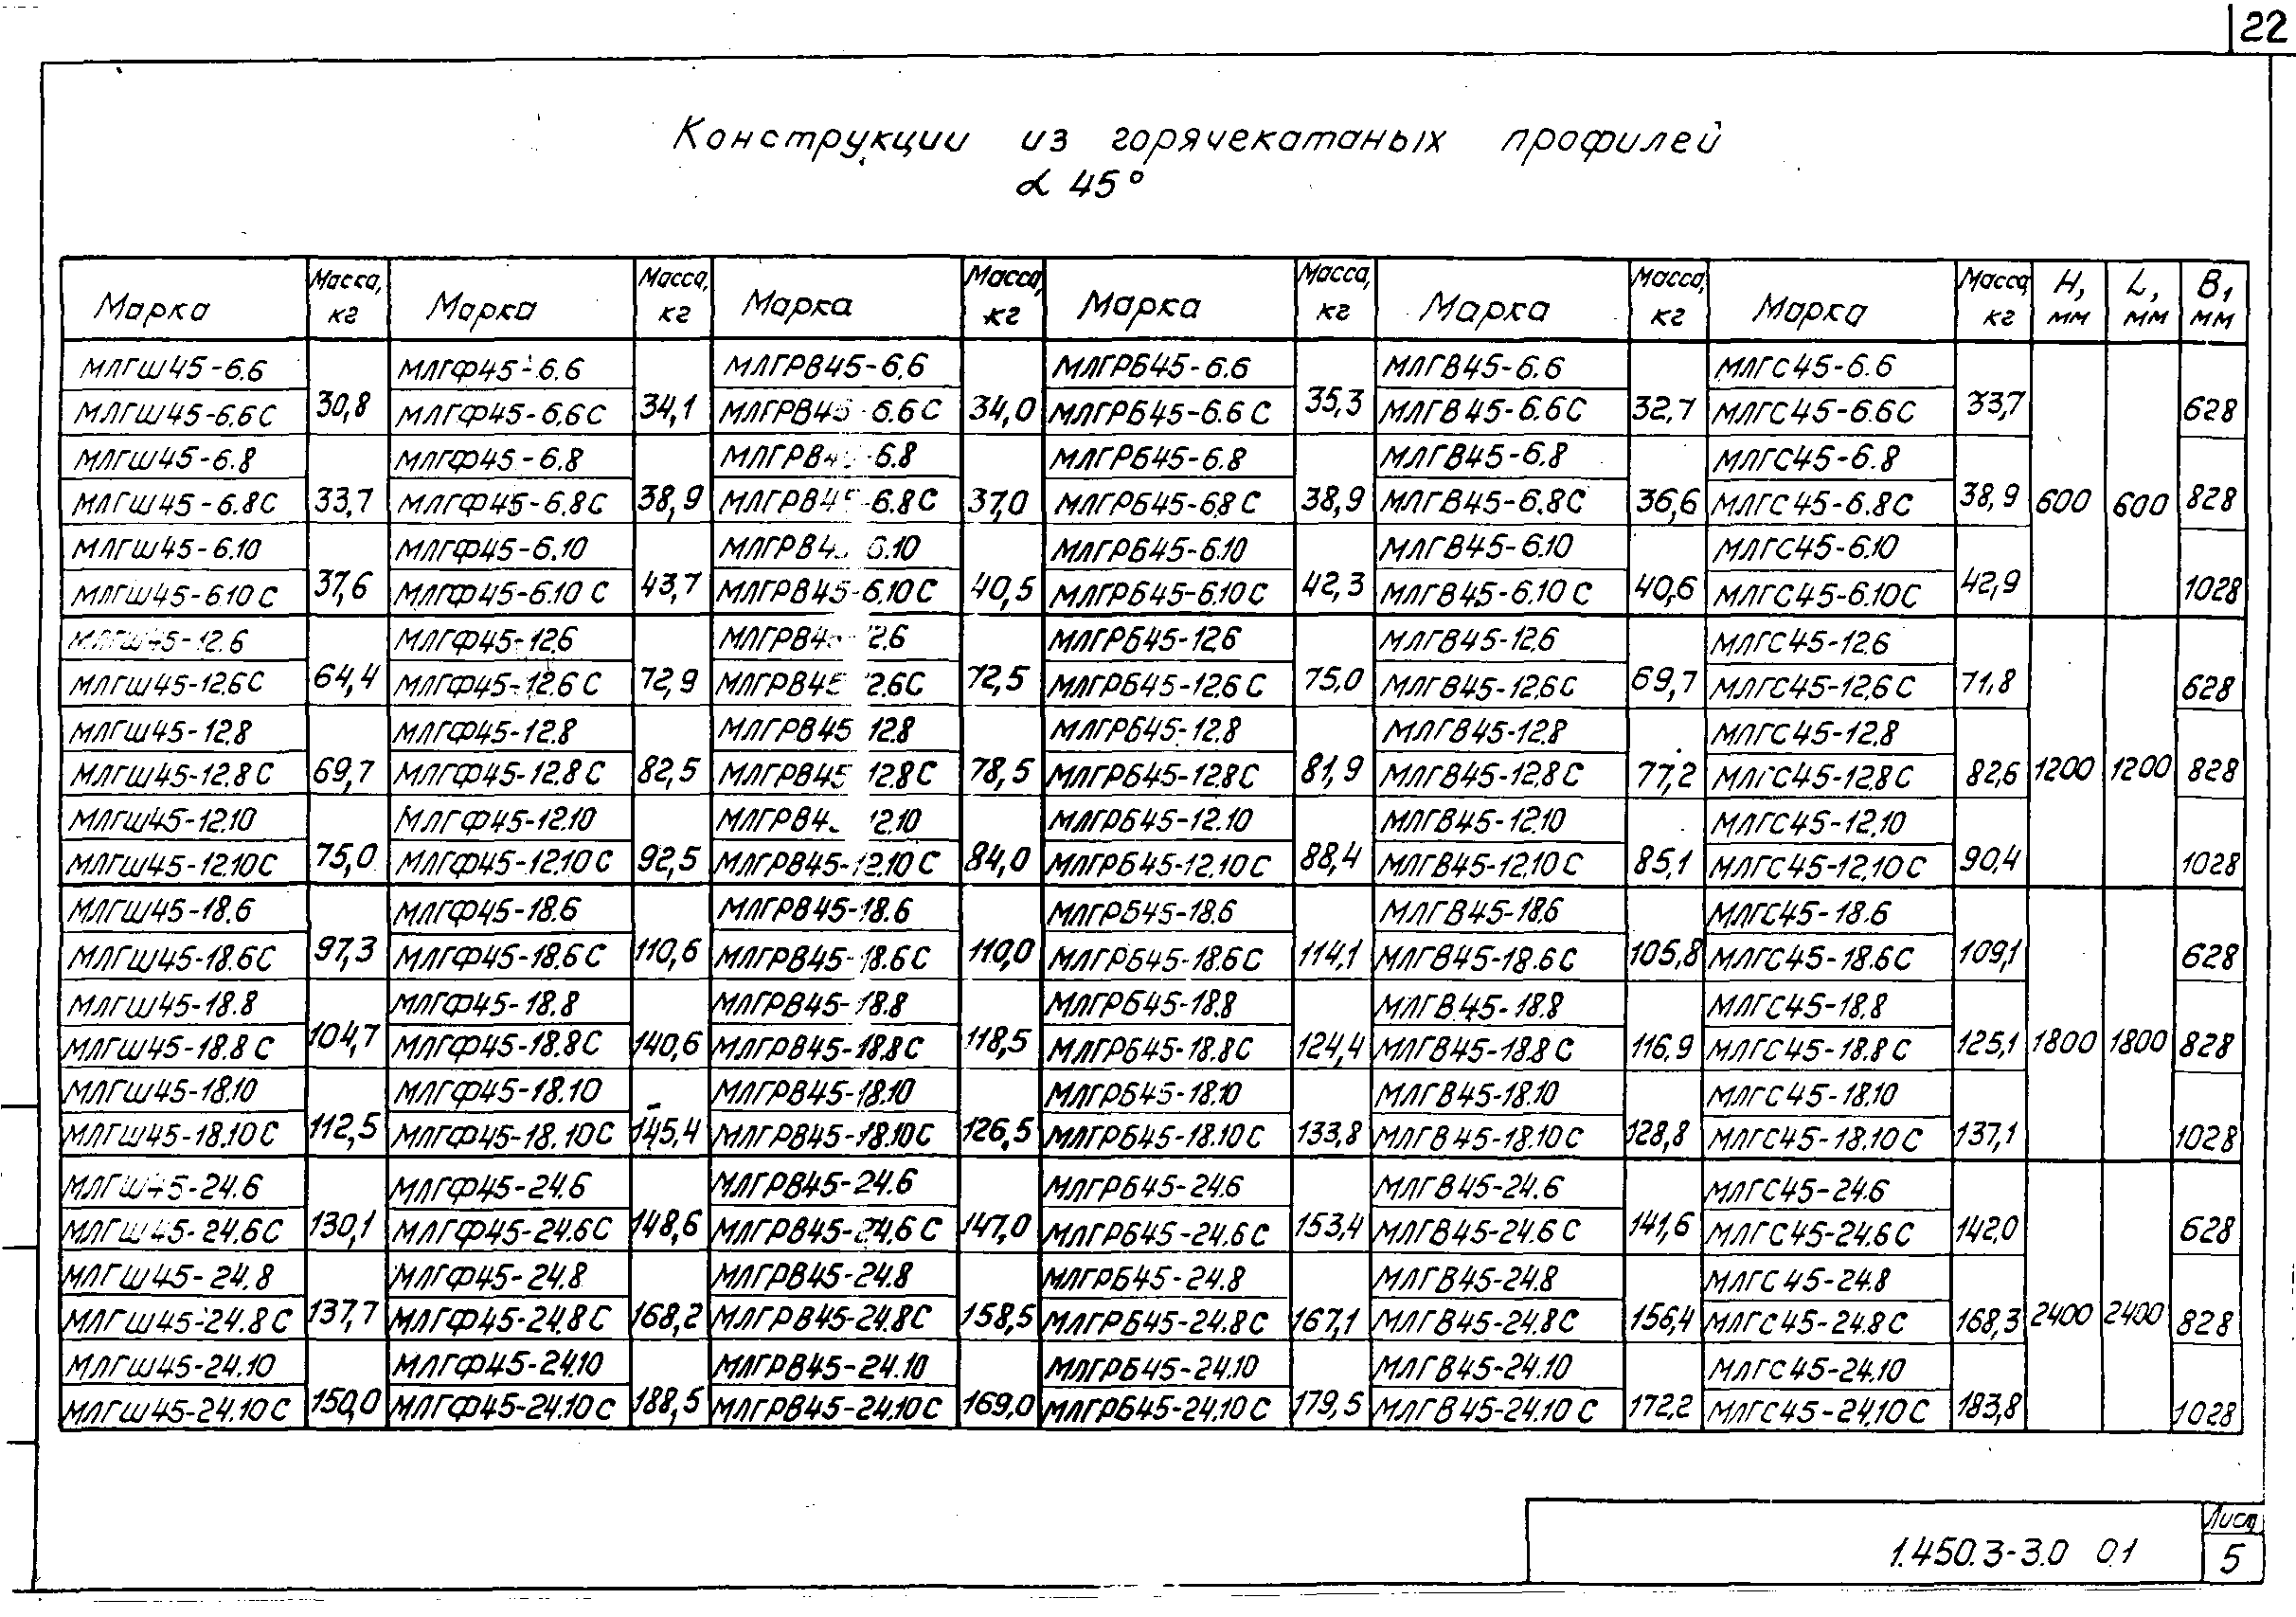 22
Конструкции из горячекатаных профилей
α 45°
Марка Масса, кг Марка Масса, кг Марка Масса, кг Марка Масса, кг Марка Масса, кг Марка Масса, кг H, мм L, мм B1, мм
МЛГШ45-6.6 МЛГФ45-6.6 МЛГРВ45-6.6 МЛГРБ45-6.6 МЛГВ45-6.6 МЛГС45-6.6
МЛГШ45-6.6С 30,8 МЛГФ45-6.6С 34,1 МЛГРВ45-6.6С 34,0 МЛГРБ45-6.6С 35,3 МЛГВ45-6.6С 32,7 МЛГС45-6.6С 33,7 628
МЛГШ45-6.8 МЛГФ45-6.8 МЛГРВ45-6.8 МЛГРБ45-6.8 МЛГВ45-6.8 МЛГС45-6.8
МЛГШ45-6.8С 33,7 МЛГФ45-6.8С 38,9 МЛГРВ45-6.8С 37,0 МЛГРБ45-6.8С 38,9 МЛГВ45-6.8С 36,6 МЛГС45-6.8С 38,9 600 600 828
МЛГШ45-6.10 МЛГФ45-6.10 МЛГРВ45-6.10 МЛГРБ45-6.10 МЛГВ45-6.10 МЛГС45-6.10
МЛГШ45-6.10С 37,6 МЛГФ45-6.10С 43,7 МЛГРВ45-6.10С 40,5 МЛГРБ45-6.10С 42,3 МЛГВ45-6.10С 40,6 МЛГС45-6.10С 42,9 1028
МЛГШ45-12.6 МЛГФ45-12.6 МЛГРВ45-12.6 МЛГРБ45-12.6 МЛГВ45-12.6 МЛГС45-12.6
МЛГШ45-12.6С 64,4 МЛГФ45-12.6С 72,9 МЛГРВ45-12.6С 72,5 МЛГРБ45-12.6С 75,0 МЛГВ45-12.6С 69,7 МЛГС45-12.6С 71,8 628
МЛГШ45-12.8 МЛГФ45-12.8 МЛГРВ45-12.8 МЛГРБ45-12.8 МЛГВ45-12.8 МЛГС45-12.8
МЛГШ45-12.8С 69,7 МЛГФ45-12.8С 82,5 МЛГРВ45-12.8С 78,5 МЛГРБ45-12.8С 81,9 МЛГВ45-12.8С 77,2 МЛГС45-12.8С 82,6 1200 1200 828
МЛГШ45-12.10 МЛГФ45-12.10 МЛГРВ45-12.10 МЛГРБ45-12.10 МЛГВ45-12.10 МЛГС45-12.10
МЛГШ45-12.10С 75,0 МЛГФ45-12.10С 92,5 МЛГРВ45-12.10С 84,0 МЛГРБ45-12.10С 88,4 МЛГВ45-12.10С 85,1 МЛГС45-12.10С 90,4 1028
МЛГШ45-18.6 МЛГФ45-18.6 МЛГРВ45-18.6 МЛГРБ45-18.6 МЛГВ45-18.6 МЛГС45-18.6
МЛГШ45-18.6С 97,3 МЛГФ45-18.6С 110,6 МЛГРВ45-18.6С 110,0 МЛГРБ45-18.6С 114,1 МЛГВ45-18.6С 105,8 МЛГС45-18.6С 109,1 628
МЛГШ45-18.8 МЛГФ45-18.8 МЛГРВ45-18.8 МЛГРБ45-18.8 МЛГВ45-18.8 МЛГС45-18.8
МЛГШ45-18.8С 104,7 МЛГФ45-18.8С 140,6 МЛГРВ45-18.8С 118,5 МЛГРБ45-18.8С 124,4 МЛГВ45-18.8С 116,9 МЛГС45-18.8С 125,1 1800 1800 828
МЛГШ45-18.10 МЛГФ45-18.10 МЛГРВ45-18.10 МЛГРБ45-18.10 МЛГВ45-18.10 МЛГС45-18.10
МЛГШ45-18.10С 112,5 МЛГФ45-18.10С 145,4 МЛГРВ45-18.10С 126,5 МЛГРБ45-18.10С 133,8 МЛГВ45-18.10С 128,8 МЛГС45-18.10С 137,1 1028
МЛГШ45-24.6 МЛГФ45-24.6 МЛГРВ45-24.6 МЛГРБ45-24.6 МЛГВ45-24.6 МЛГС45-24.6
МЛГШ45-24.6С 130,1 МЛГФ45-24.6С 148,6 МЛГРВ45-24.6С 147,0 МЛГРБ45-24.6С 153,4 МЛГВ45-24.6С 141,6 МЛГС45-24.6С 142,0 628
МЛГШ45-24.8 МЛГФ45-24.8 МЛГРВ45-24.8 МЛГРБ45-24.8 МЛГВ45-24.8 МЛГС45-24.8
МЛГШ45-24.8С 137,7 МЛГФ45-24.8С 168,2 МЛГРВ45-24.8С 158,5 МЛГРБ45-24.8С 167,1 МЛГВ45-24.8С 156,4 МЛГС45-24.8С 168,3 2400 2400 828
МЛГШ45-24.10 МЛГФ45-24.10 МЛГРВ45-24.10 МЛГРБ45-24.10 МЛГВ45-24.10 МЛГС45-24.10
МЛГШ45-24.10С 150,0 МЛГФ45-24.10С 188,5 МЛГРВ45-24.10С 169,0 МЛГРБ45-24.10С 179,5 МЛГВ45-24.10С 172,2 МЛГС45-24.10С 183,8 1028
Лист
1.450.3-3.0 0.1 5